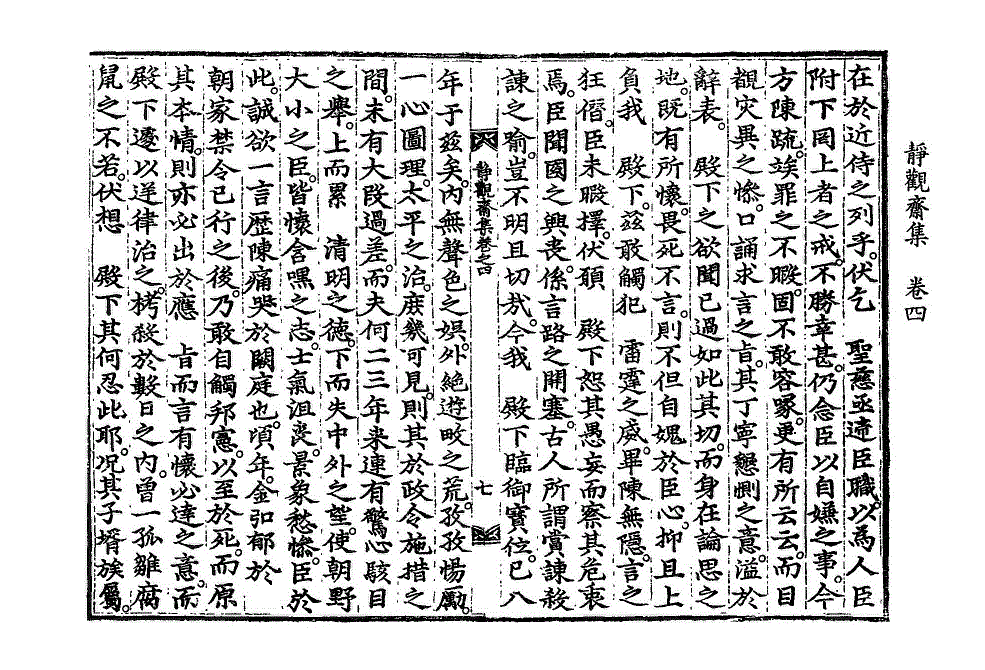 靜觀齋集　卷四
在於近侍之列乎。伏乞　聖慈亟遞臣職。以爲人臣
附下罔上者之戒。不勝幸甚。仍念臣以自嫌之事。今
方陳疏。竢罪之不暇。固不敢容喙。更有所云云。而目
覩灾異之慘。口誦求言之旨。其丁寧懇惻之意。溢於
辭表。　殿下之欲聞已過如此其切。而身在論思之
地。旣有所懷。畏死不言。則不但自媿於臣心。抑且上
負我　殿下。玆敢觸犯　雷霆之威。畢陳無隱。言之
狂僭。臣未暇擇。伏願　殿下恕其愚妄而察其危衷
焉。臣聞國之興喪。係言路之開塞。古人所謂賞諫殺
諫之喩。豈不明且切哉。今我　殿下臨御寶位。已八
靜觀齋集卷之四　七
年于玆矣。內無聲色之娛。外絶遊畋之荒。孜孜惕勵。
一心圖理。太平之治。庶幾可見。則其於政令施措之
間。未有大段過差。而夫何二三年來。連有驚心駭目
之擧。上而累　淸明之德。下而失中外之望。使朝野
大小之臣。皆懷含嘿之志。士氣沮喪。景象愁慘。臣於
此。誠欲一言歷陳痛哭於闕庭也。頃年。金弘郁於
朝家禁令已行之後。乃敢自觸邦憲。以至於死。而原
其本情。則亦必出於應　旨而言有懷必達之意。而
殿下遽以逆律治之。栲殺於數日之內。曾一孤雛腐
鼠之不若。伏想　殿下其何忍此耶。况其子壻族屬。